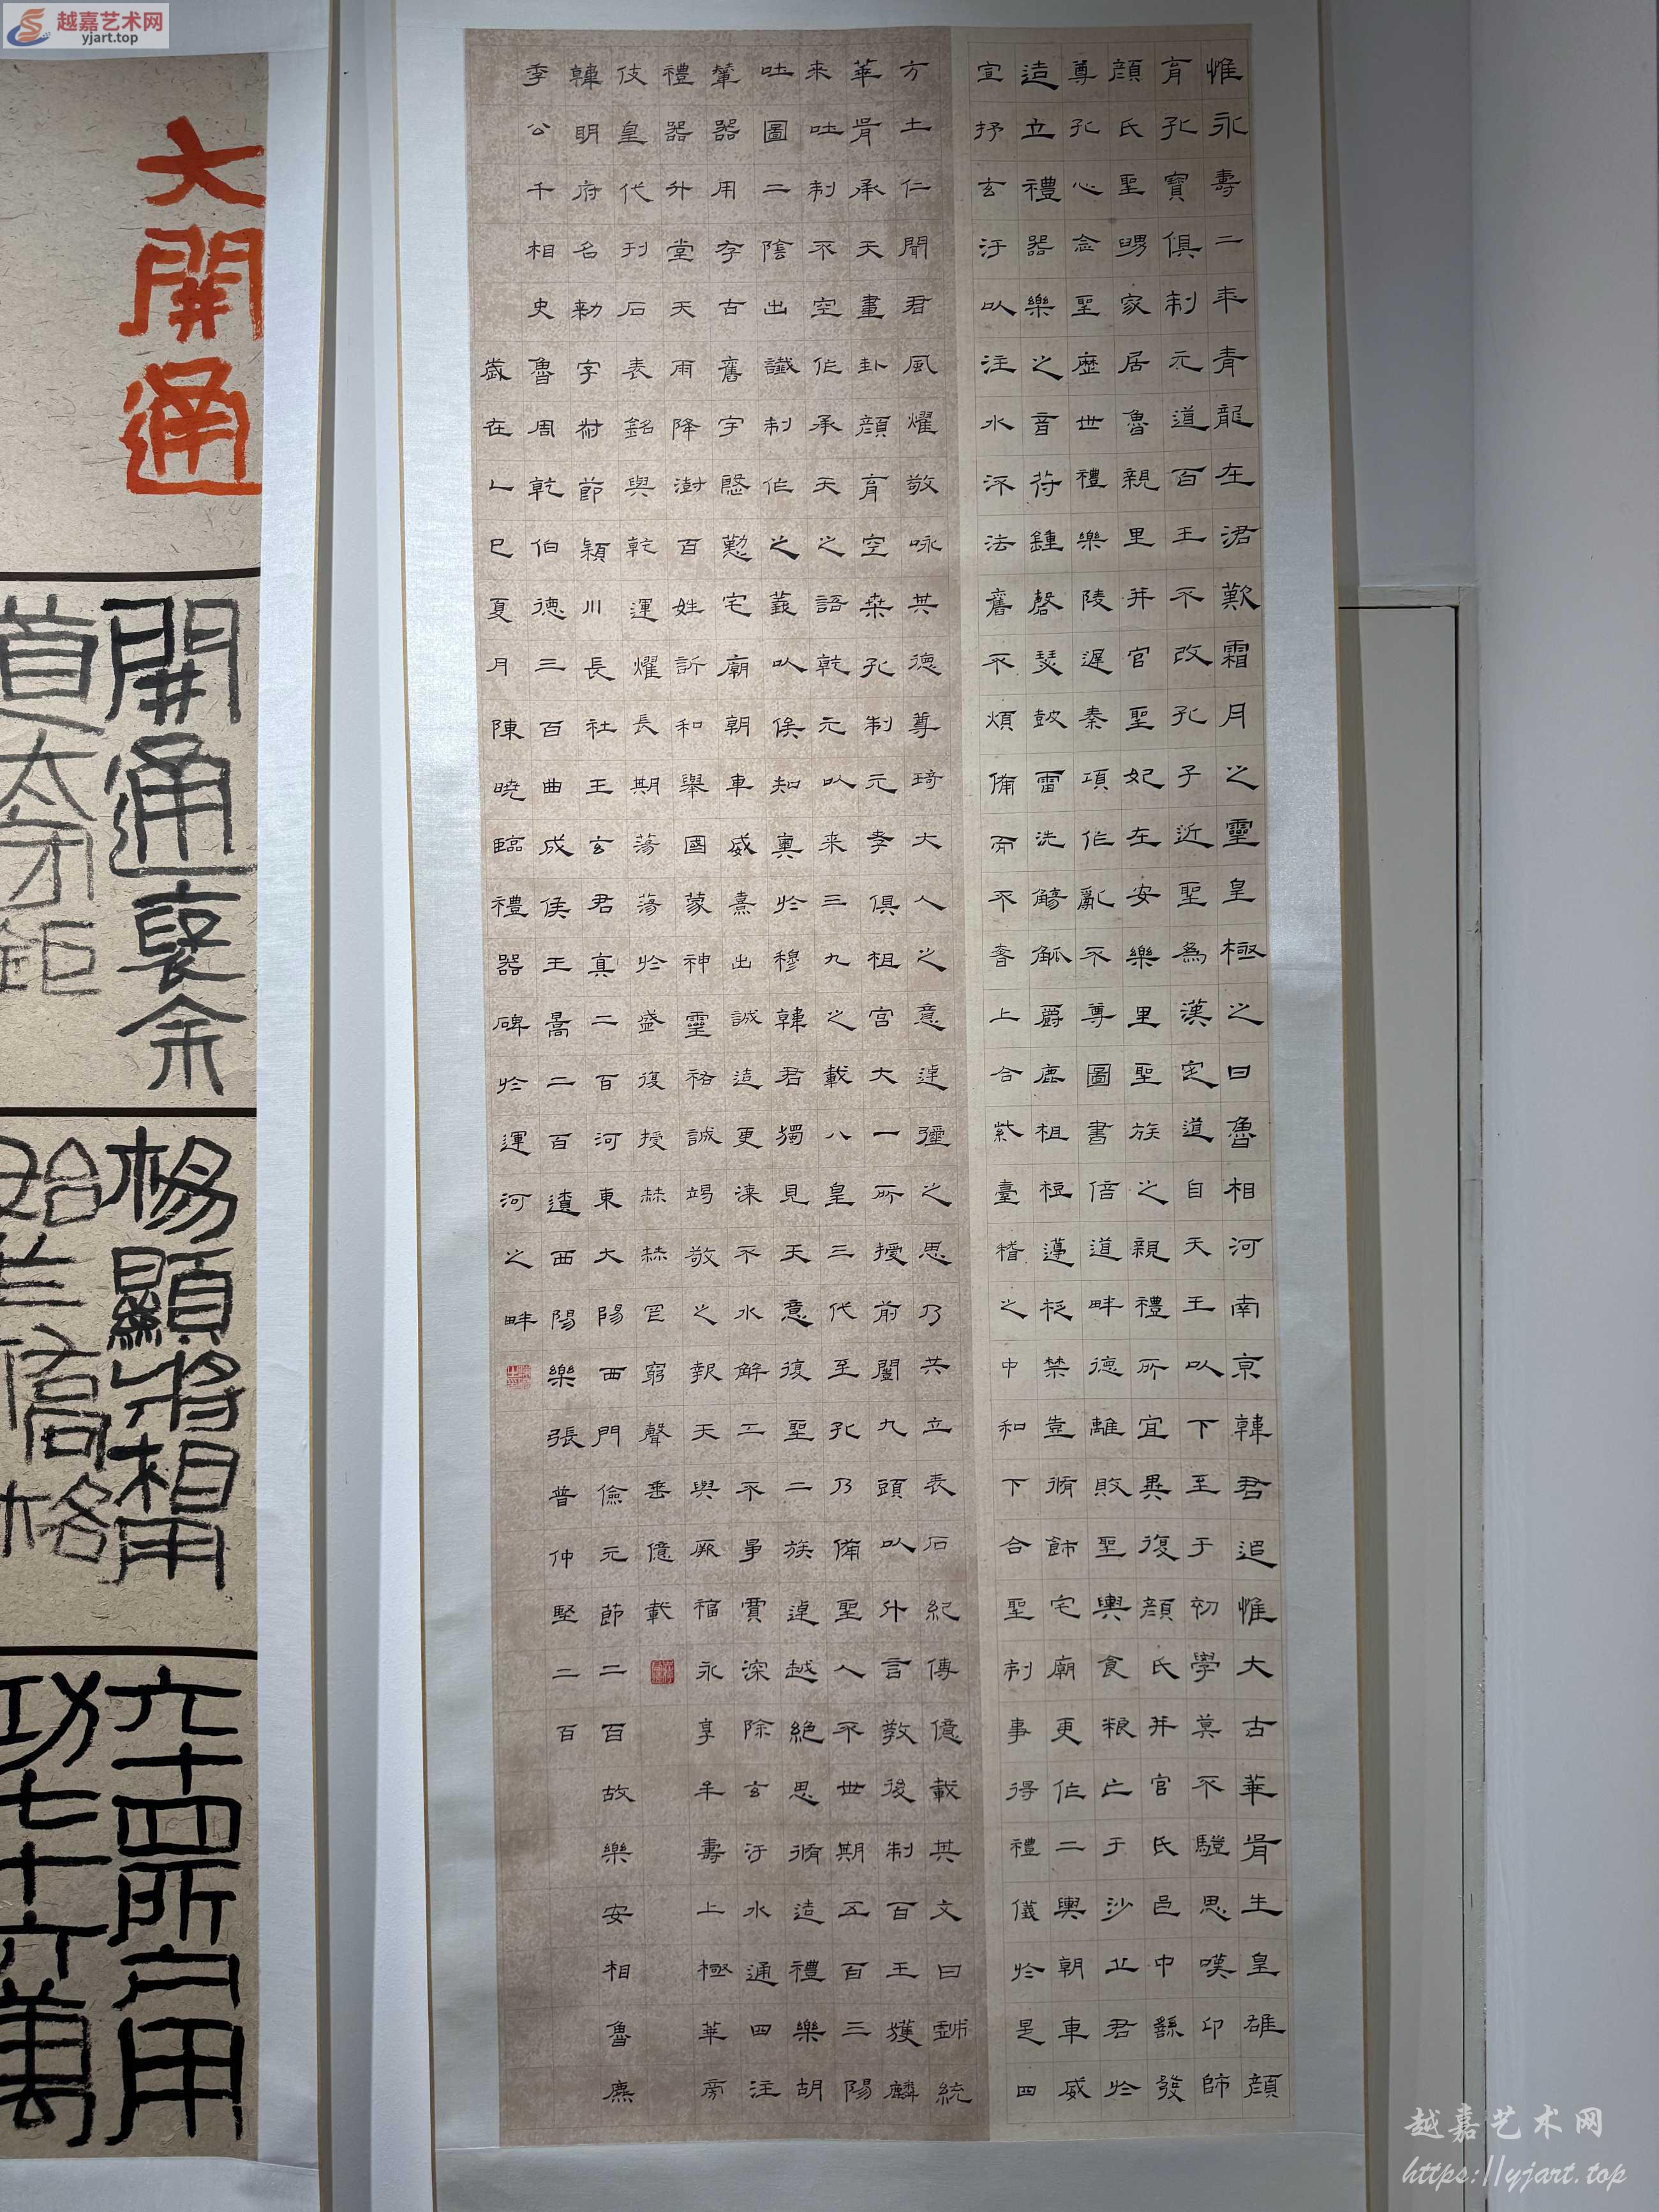 越嘉艺术网
yjart.top
大開通
開通褒余
道太守鉅
楊顯將相用
六十四所用
功七十六萬
惟永壽二年青龍在涒歎霜月之靈皇極之日魯相河南京韓君追惟大古華胥生皇雄顔
育孔寳俱制元道百王不改孔子近聖爲漢定道自天王以下至于初學莫不驥思嘆卬師
顔氏聖舅家居魯親里并官聖妃在安樂里聖族之親禮所宜異復顔氏并官氏邑中繇發
尊孔心念聖歷世禮樂陵遲秦項作亂不尊圖書倍道畔德離敗聖輿食粮亡于沙丘君於
造立禮器樂之音苻鍾磬瑟鼓雷洗觴觚爵鹿柤梪籩柉禁壺脩飾宅廟更作二輿朝車威
宣抒玄汙以注水流法舊不煩備而不奢上合紫臺稽之中和下合聖制事得禮儀於是四
方土仁聞君風燿敬咏其德尊琦大人之意逴彌之思乃共立表石紀傳億載其文曰戲統
華胥承天畫卦顔育空桑孔制元孝俱祖宮大一所授前闓九頭以升言教後制百王獲麟
来吐制不空作承天之語乾元以来三九之載八皇三代至孔乃備聖人不世期五百三陽
吐圖二陰出讖制作之義以俟知奥於穆韓君獨見天意復聖二族逴越絶思脩造禮樂胡
輦器用存古舊宇慇懃宅廟朝車威熹出誠造更漆不水解工不爭賈深除玄汙水通四注
禮器升堂天雨降澍百姓訢和舉國蒙神靈祐誠竭敬之報天與厥福永享牟壽上極華帝
伎皇代刊石表銘與乾運燿長期蕩蕩於盛復授赫赫罔窮聲垂億載
韓明府名勑字叔節穎川長社王玄君真二百河東大陽西門儉元節二百故樂安相魯麃
季公千相史魯周乾伯德三百曲成侯王暠二百遼西陽樂張普仲堅二百
歲在乙巳夏月陳曉臨禮器碑於運河之畔
越嘉艺术网
https://yjart.top